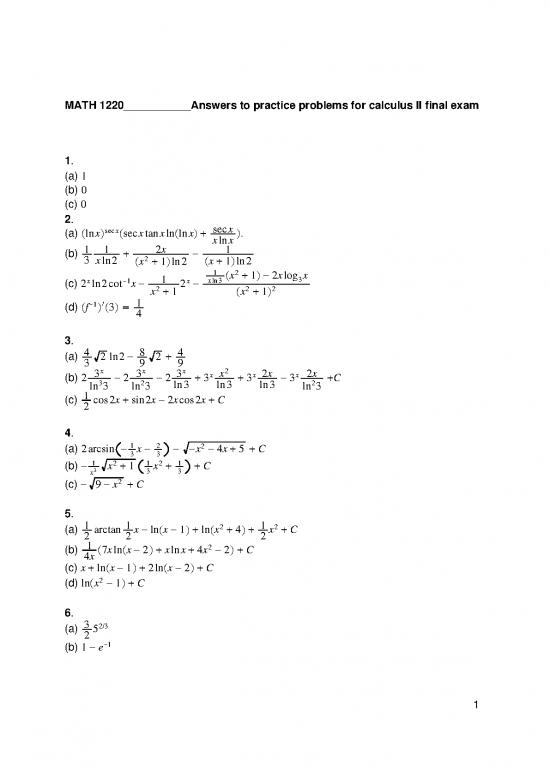 MATH 1220___________Answers to practice problems for calculus II final exam
1.
(a) 1
(b) 0
(c) 0
2.
(a) (ln x)^{sec x}(sec x tan x ln(ln x) + \frac{sec x}{x ln x}).
(b) \frac{1}{3} \frac{1}{x ln 2} + \frac{2x}{(x^2 + 1) ln 2} − \frac{1}{(x + 1) ln 2}
(c) 2^x ln 2 cot^{-1} x − \frac{1}{x^2 + 1} 2^x − \frac{\frac{1}{x ln 3}(x^2 + 1) − 2x log_3 x}{(x^2 + 1)^2}
(d) (f^{-1})′(3) = \frac{1}{4}
3.
(a) \frac{4}{3} √2 ln 2 − \frac{8}{9} √2 + \frac{4}{9}
(b) 2 \frac{3^x}{ln^3 3} − 2 \frac{3^x}{ln^2 3} − 2 \frac{3^x}{ln 3} + 3^x \frac{x^2}{ln 3} + 3^x \frac{2x}{ln 3} − 3^x \frac{2x}{ln^2 3} + C
(c) \frac{1}{2} cos 2x + sin 2x − 2x cos 2x + C
4.
(a) 2 arcsin(−\frac{1}{3}x − \frac{2}{3}) − √{−x^2 − 4x + 5} + C
(b) −\frac{1}{x^3} √{x^2 + 1} (\frac{1}{3}x^2 + \frac{1}{3}) + C
(c) −√{9 − x^2} + C
5.
(a) \frac{1}{2} arctan \frac{1}{2}x − ln(x − 1) + ln(x^2 + 4) + \frac{1}{2}x^2 + C
(b) \frac{1}{4x}(7x ln(x − 2) + x ln x + 4x^2 − 2) + C
(c) x + ln(x − 1) + 2 ln(x − 2) + C
(d) ln(x^2 − 1) + C
6.
(a) \frac{3}{2} 5^{2/3}
(b) 1 − e^{-1}
1